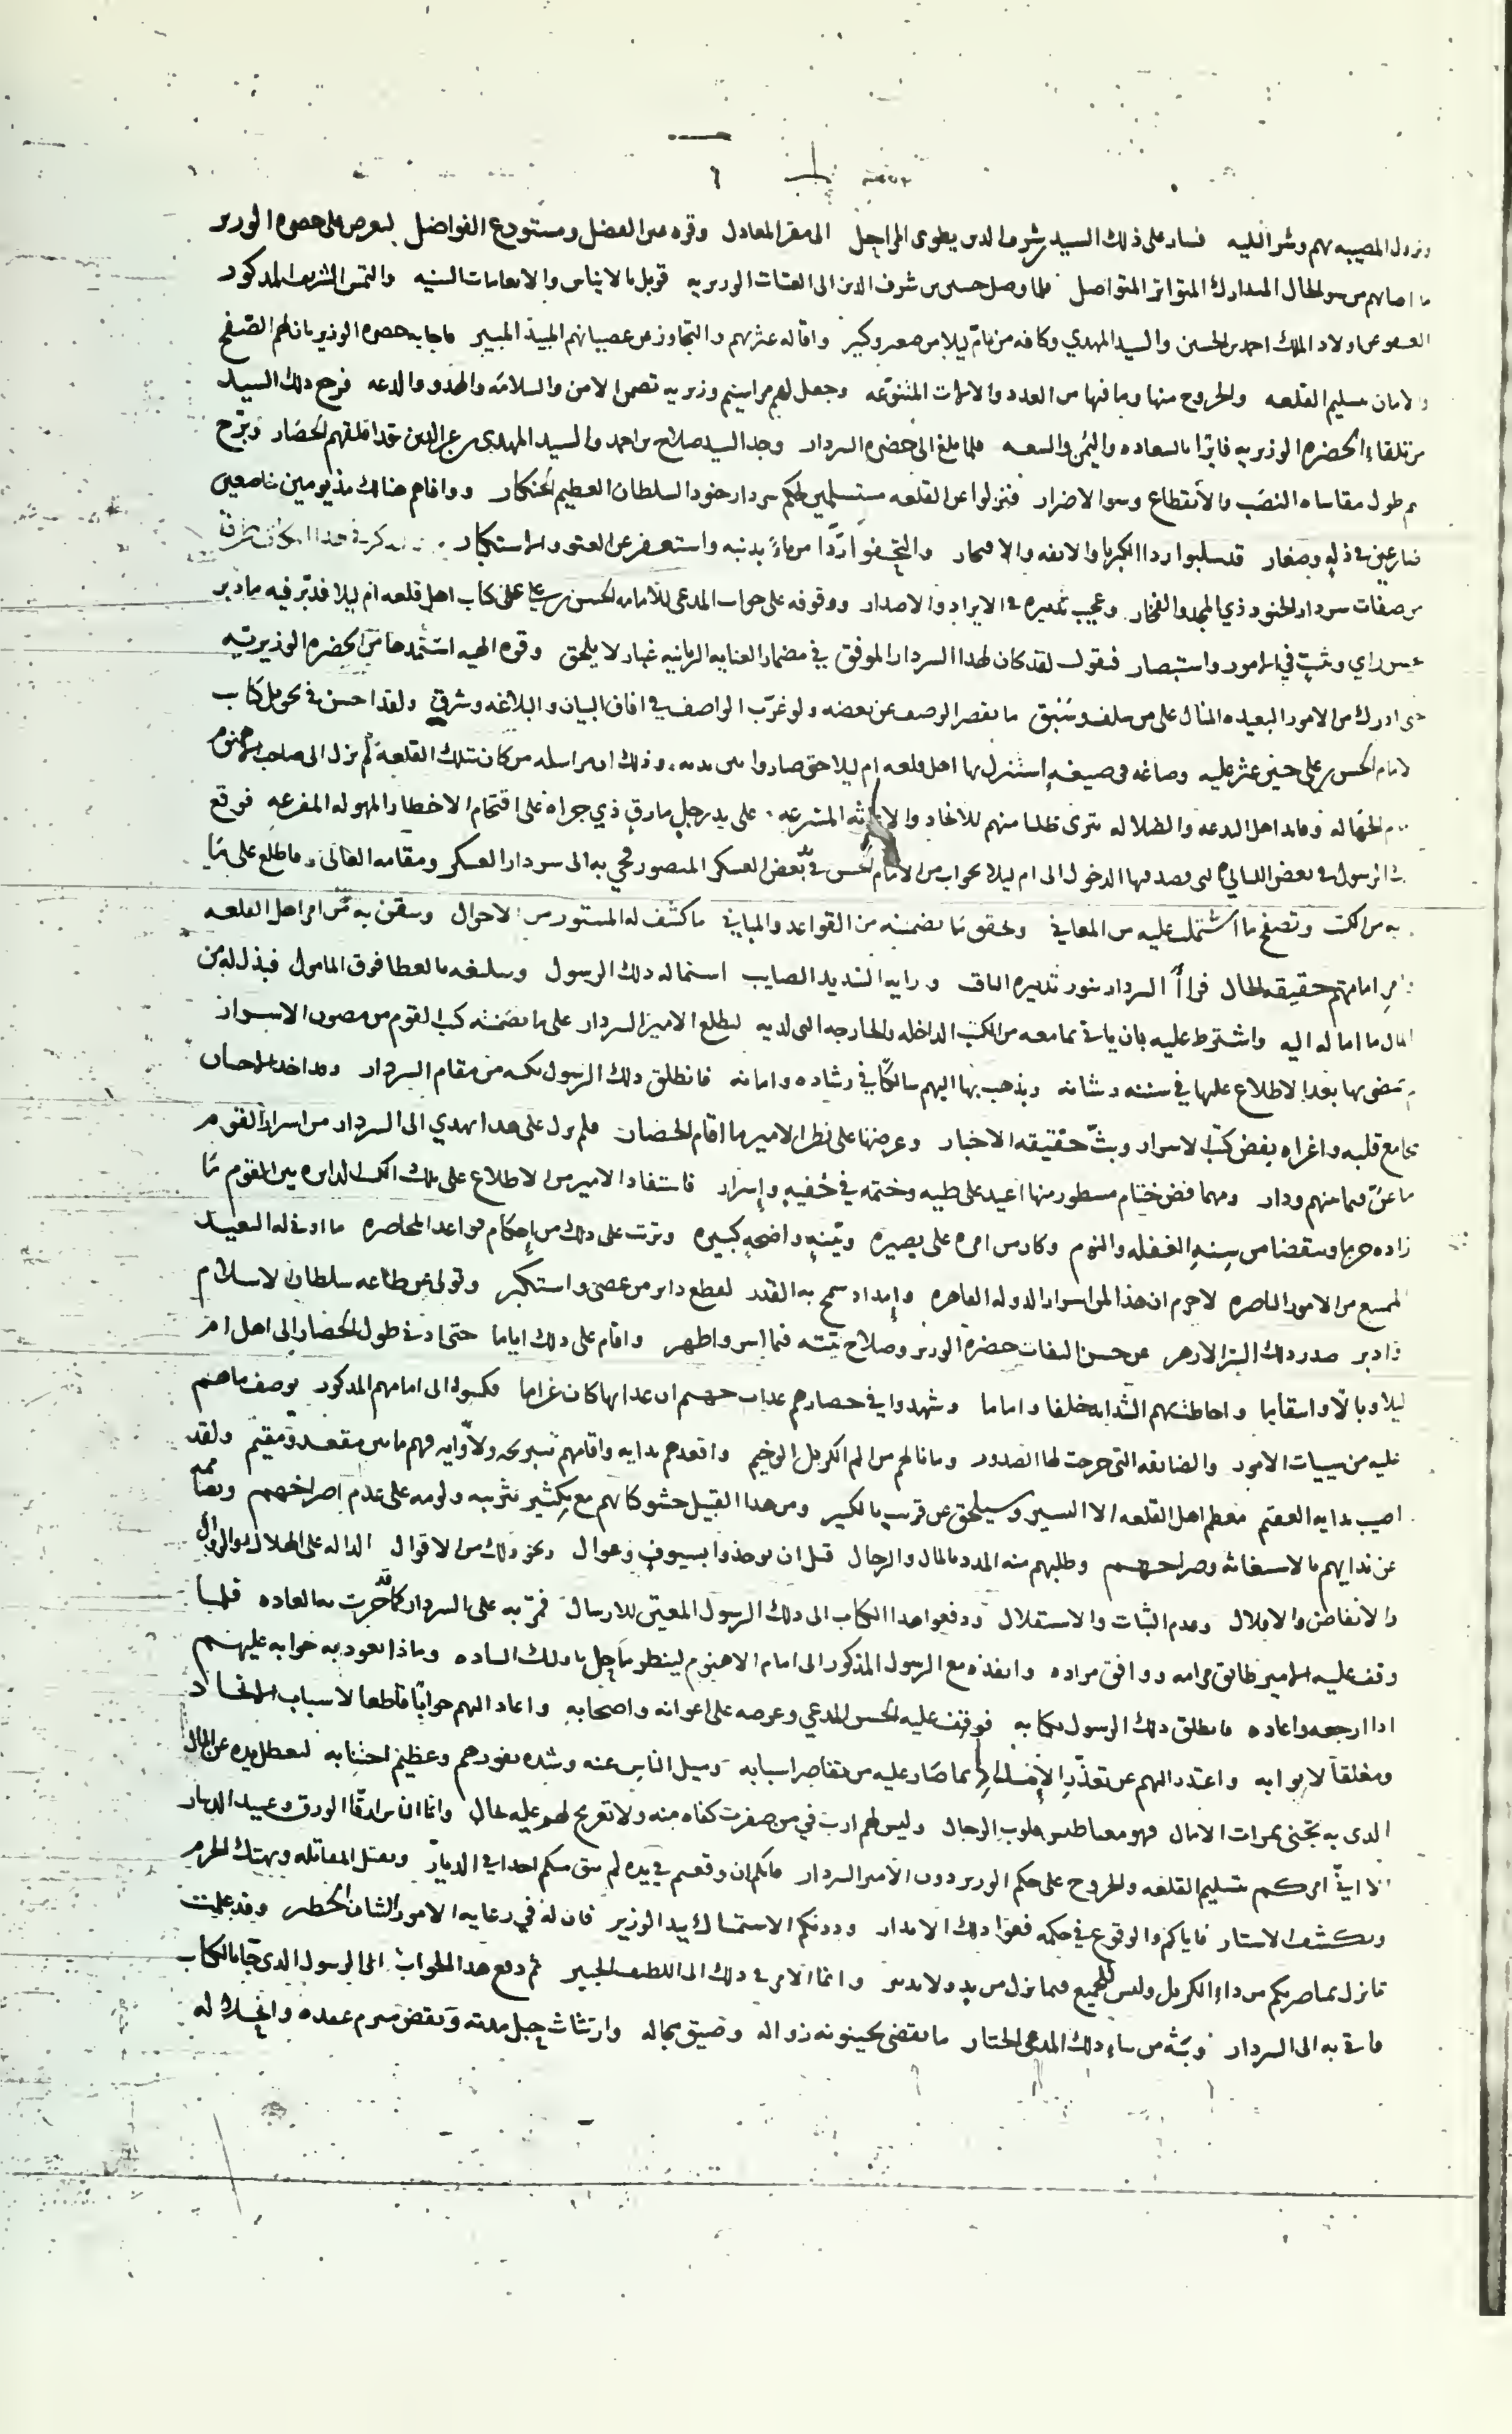 ونزول المصيبه بهم وشر البليه فسار على ذلك السيد شرف الدين يطوى المراحل الى مقر المعادل وقره عين الفضل ومستودع الفواضل ليعرض على حضره الوزير
ما اصابهم من سو الحال المتدارك المتواتر المتواصل فلما وصل حسين بن شرف الدين الى العتبات الوزيريه قوبل بالايناس والانعامات السنيه والتمس الشريف المذكور
العفو عن اولاد الملك احمد بن الحسين والسيد المهدي وكافه من بام ليلا من صغير وكبير واقاله عثرتهم والتجاوز عن عصيانهم المبيد المبير فاجابه حضره الوزير بان لهم الصفح
والامان بتسليم القلعه والخروج منها وما فيها من العدد والالات المتنوعه وجعل لهم مراسيم وزيريه تضمن الامن والسلامه والهدو والدعه فرجع ذلك السيد
من تلقاء الحضره الوزيريه فايزا بالسعاده واليمن والسعه فلما بلغ الى حضره السردار وجد السيد صلاح بن احمد والسيد المهدى بن عز الدين قد اقلقهم الحصار وبرح
بهم طول مقاساه النصب والانقطاع وسو الاضرار فنزلوا عن القلعه مستسلمين لحكم سردار جنود السلطان العظيم الخنكار ووافاهم هنالك مذيومين خاضعين
ضارعين في ذله وصغار قد سلبوا ردا الكبريا والانفه والافتخار والتحفوا ردا من باء بذنبه واستغفر عن العتو والاستكبار
من صفات سردار الجنود ذي المجد والفخار وعجيب تدبيره في الايراد والاصدار ووقوفه على جواب المدعى للامامه الحسن بن علي على كتاب اهل قلعه ام ليلا فدبر فيه ما دبر
بحسن راي وتثبت في الامور واستبصار فنقول لقد كان لهذا السردار الموفق في مضمار العنايه الربانيه غبار لا يلحق وقوه الهيه استمدها من الحضره الوزيريه
حتى ادرك من الامور البعيده المنال على من سلف وسبق ما يقصر الوصف عن بعضه ولو غرب الواصف في افاق البيان والبلاغه وشرق ولقد احسن في تحويل كتاب
الامام الحسن بن علي حين عثر عليه وصاغه في صيغه استنزل بها اهل قلعه ام ليلا حتى صاروا بين يديه وذلك ان مراسله من كان بتلك القلعه لم تزل الى صاحب الاهنوم
الجهاله وقايد اهل البدعه والضلاله تترى طلبا منهم للانجاد والاغاثه المسرعه على يد رجل مارق ذي جراه على اقتحام الاخطار المهوله المفزعه فوقع
الرسول في بعض الليالي التى قصد فيها الدخول الى ام ليلا بجواب من الامام الحسن في بعض العسكر المنصور فجي به الى سردار العسكر ومقامه العالى وما طلع على ما
به من الكتب وتصفح ما اشتملت عليه من المعاني وتحقق ما تضمنته من القواعد والمباني ما كشف له المستور من الاحوال وتيقن به من امر اهل القلعه
وامر امامهم حقيقه الحال فراأ السردار بنور تدبيره الثاقب ورايه السديد الصايب استماله ذلك الرسول وتبليغه بالعطا فوق المامول فبذل له من
المال ما اماله اليه واشترط عليه بان ياتي بما معه من الكتب الداخله والخارجه التى لديه ليطلع الامير السردار على ما تضمنته كتب القوم من مصون الاسرار
ويمضى بها بعد الاطلاع عليها في سننه وشانه ويذهب بها اليهم سالكا في رشاده وامانه فانطلق ذلك الرسول بكتبه من مقام السردار وقد اخذ الاحسان
بمجامع قلبه واغراه بفض كتب الاسرار وبث حقيقه الاخبار وعرضها على نظر الامير ما اقام الحصار فلم يزل على هذا يهدي الى السردار من اسرار القوم
ما عن فيما بينهم ودار ومهما فض ختام مسطور منها اعيد على طيه وختمه في خفيه واسرار فاستفاد الامير من الاطلاع على تلك الكتب الدايره بين القوم ما
زاده حزما وتيقضا من سنه الغفله والنوم وكان من امره على بصيره وبينه واضحه كبيره وترتب على ذلك من احكام قواعد المحاصره ما ادنى له البعيد
الممتنع من الامور الناصره لاجرم ان هذا لمن اسرار الدوله القاهره وامداد سمح به القدر لقطع دابر من عصى واستكبر وتولى عن طاعه سلطان الاسلام
وادبر صدر ذلك السر الازهر عن حسن التفات حضره الوزير وصلاح نيته فيما اسر واظهر واقام على ذلك اياما حتى ادى طول الحصار الى اهل ام
ليلا وبالا واسقاما واحاطت بهم الشدايد خلفا واماما وشهدوا في حصارهم عذاب جهنم ان عذابها كان غراما فكتبوا الى امامهم المذكور بوصف ما هم
عليه من سييات الامور والضايقه التى حرجت لها الصدور وما نالهم من الم الكربل الوخيم واقعدهم بدايه واقامهم فهم ما بين مقعد ومقيم ولقد
اصيب بدايه العقيم معظم اهل القلعه الا اليسير وسيلحق عن قريب بالكبير ومن هذا القبيل حشو كتابهم مع تكثير تثريبه ولومه على عدم اصراخهم وتصاممه
عن ندايهم بالاستغاثه وصراخهم وطلبهم منه المدد بالمال والرجال قبل ان يوخذوا بسيوف وعوال ونحو ذلك من الاقوال الداله على الهلاك والزوال
والانفاض والاقلال وعدم الثبات والاستقلال ودفعوا هذا الكتاب الى ذلك الرسول المعين للارسال فمر به على السردار كما قد جرت به العاده فلما
وقف عليه الامير طابق مرامه ووافق مراده وانفذه مع الرسول المذكور الى امام الاهنوم لينظر ما حل باولئك الساده وماذا يعود به جوابه عليهم
اذا ارجعه واعاده فانطلق ذلك الرسول بكتابه فوقف عليه الحسن المدعي وعرضه على اعوانه واصحابه واعاد اليهم جوابا قاطعا لاسباب الانجاد
ومغلقا لابوابه واعتذر اليهم عن تعذر الامداد بما صار عليه من تقاصر اسبابه وميل الناس عنه وشده نفورهم وعظيم اجتنابه لتعطل يده عن المال
الذى به تجتنى ثمرات الامال فهو مغناطيس قلوب الرجال وليس لهم ارب في من صفرت كفاه منه ولا تعريج لهم عليه بحال وانما الناس ارقا الورق وعبيد الدينار
الا اني امركم بتسليم القلعه والخروج على حكم الوزير دون الامير السردار فانكم ان وقعتم في يده لم يبق منكم احدا في الديار وتقتل المقاتله ويهتك الحرم
وتكشف الاستار فاياكم والوقوع في حكمه فهو ادلك الادمار ودونكم الاستمساك بيد الوزير فان له في رعايه الامور الشان الخطير وقد علمت
ما نزل بمناصريكم من داء الكربل وليس للجميع فيما نزل من يد ولا تدبير وانما الامر في ذلك الى اللطيف الخبير ثم دفع هذا الجواب الى الرسول الذى جا بالكتاب
فاتى به الى السردار وبثه من نباء ذلك المدعى الختار ما يقضى بحينونه زواله وضيق مجاله وارتثاث حبل مدته وتقض مبرم عقده وانحلاله